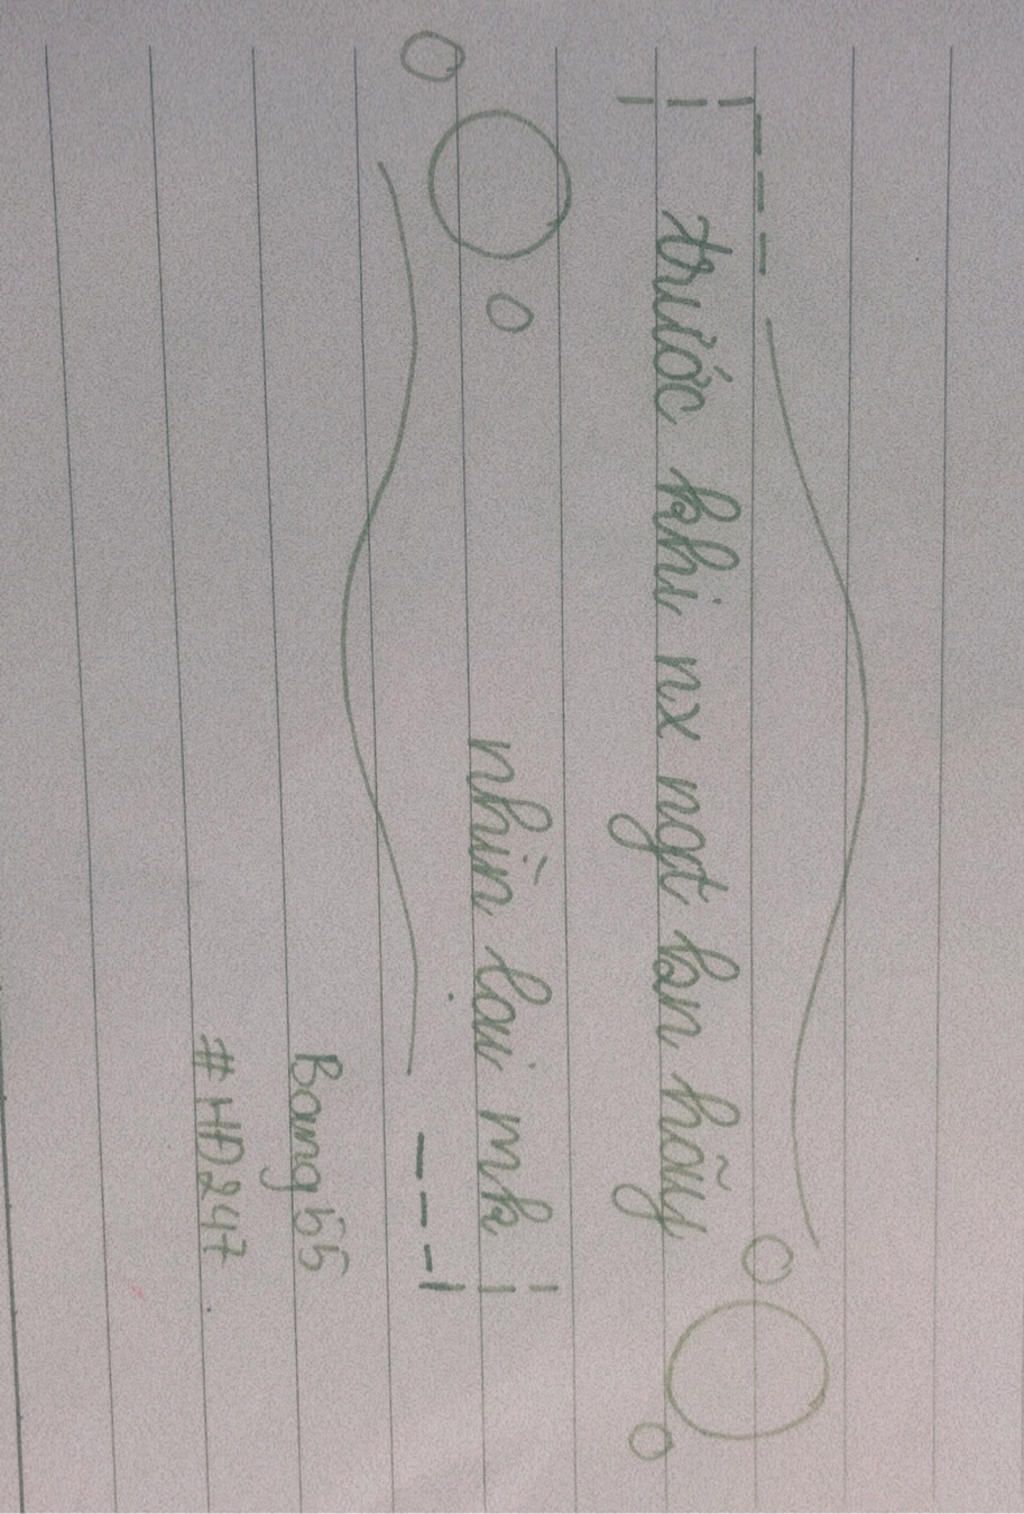 trước khi nx ngt bạn hãy
nhìn lại mk
Bang 55
#HĐ247